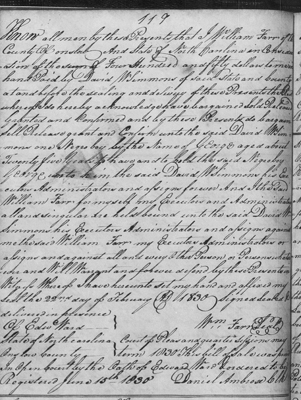 119
Know all men by these Presents that I William Farr of
County of Onslow And State of North Carolina in Consider
ation of the sum of Four Hundred and fifty dollars to me in
hand Paid by David W Simmons of said State and County
at and before the sealing and delivery of these Presents the
whereof I do hereby acknowledge have bargained sold
and Confirmed and by these Presents do bargain
sell Release grant and Confirm unto the said David W Sim
mons one Negro boy by the Name of George aged about
Twenty five Years To have and to hold the said Negro boy
George unto him the said David W Simmons his Exe
cutors Administrators and assigns forever And I the said
William Farr for myself my Executors and Administrators
all and singular do hold bound unto the said David W
Simmons his Executors Administrators and assigns against
me the said William Farr my Executors Administrators or
assigns and against all and every other Person or Persons
and Will Warrant and forever defend by these Presents
Whereof I have hereunto set my hand and affixed my
seal the 22nd day of February AD 1830 Signed sealed &
delivered in presence
Edw Ward
Wm Farr Seal
State of North Carolina
Court of Pleas and quarter Sessions
Onslow County
term 1830 this bill of sale was
In Open Court by the Oath of Edward Ward Ordered to be
Registered June 15th 1830
Daniel Ambrose Clk